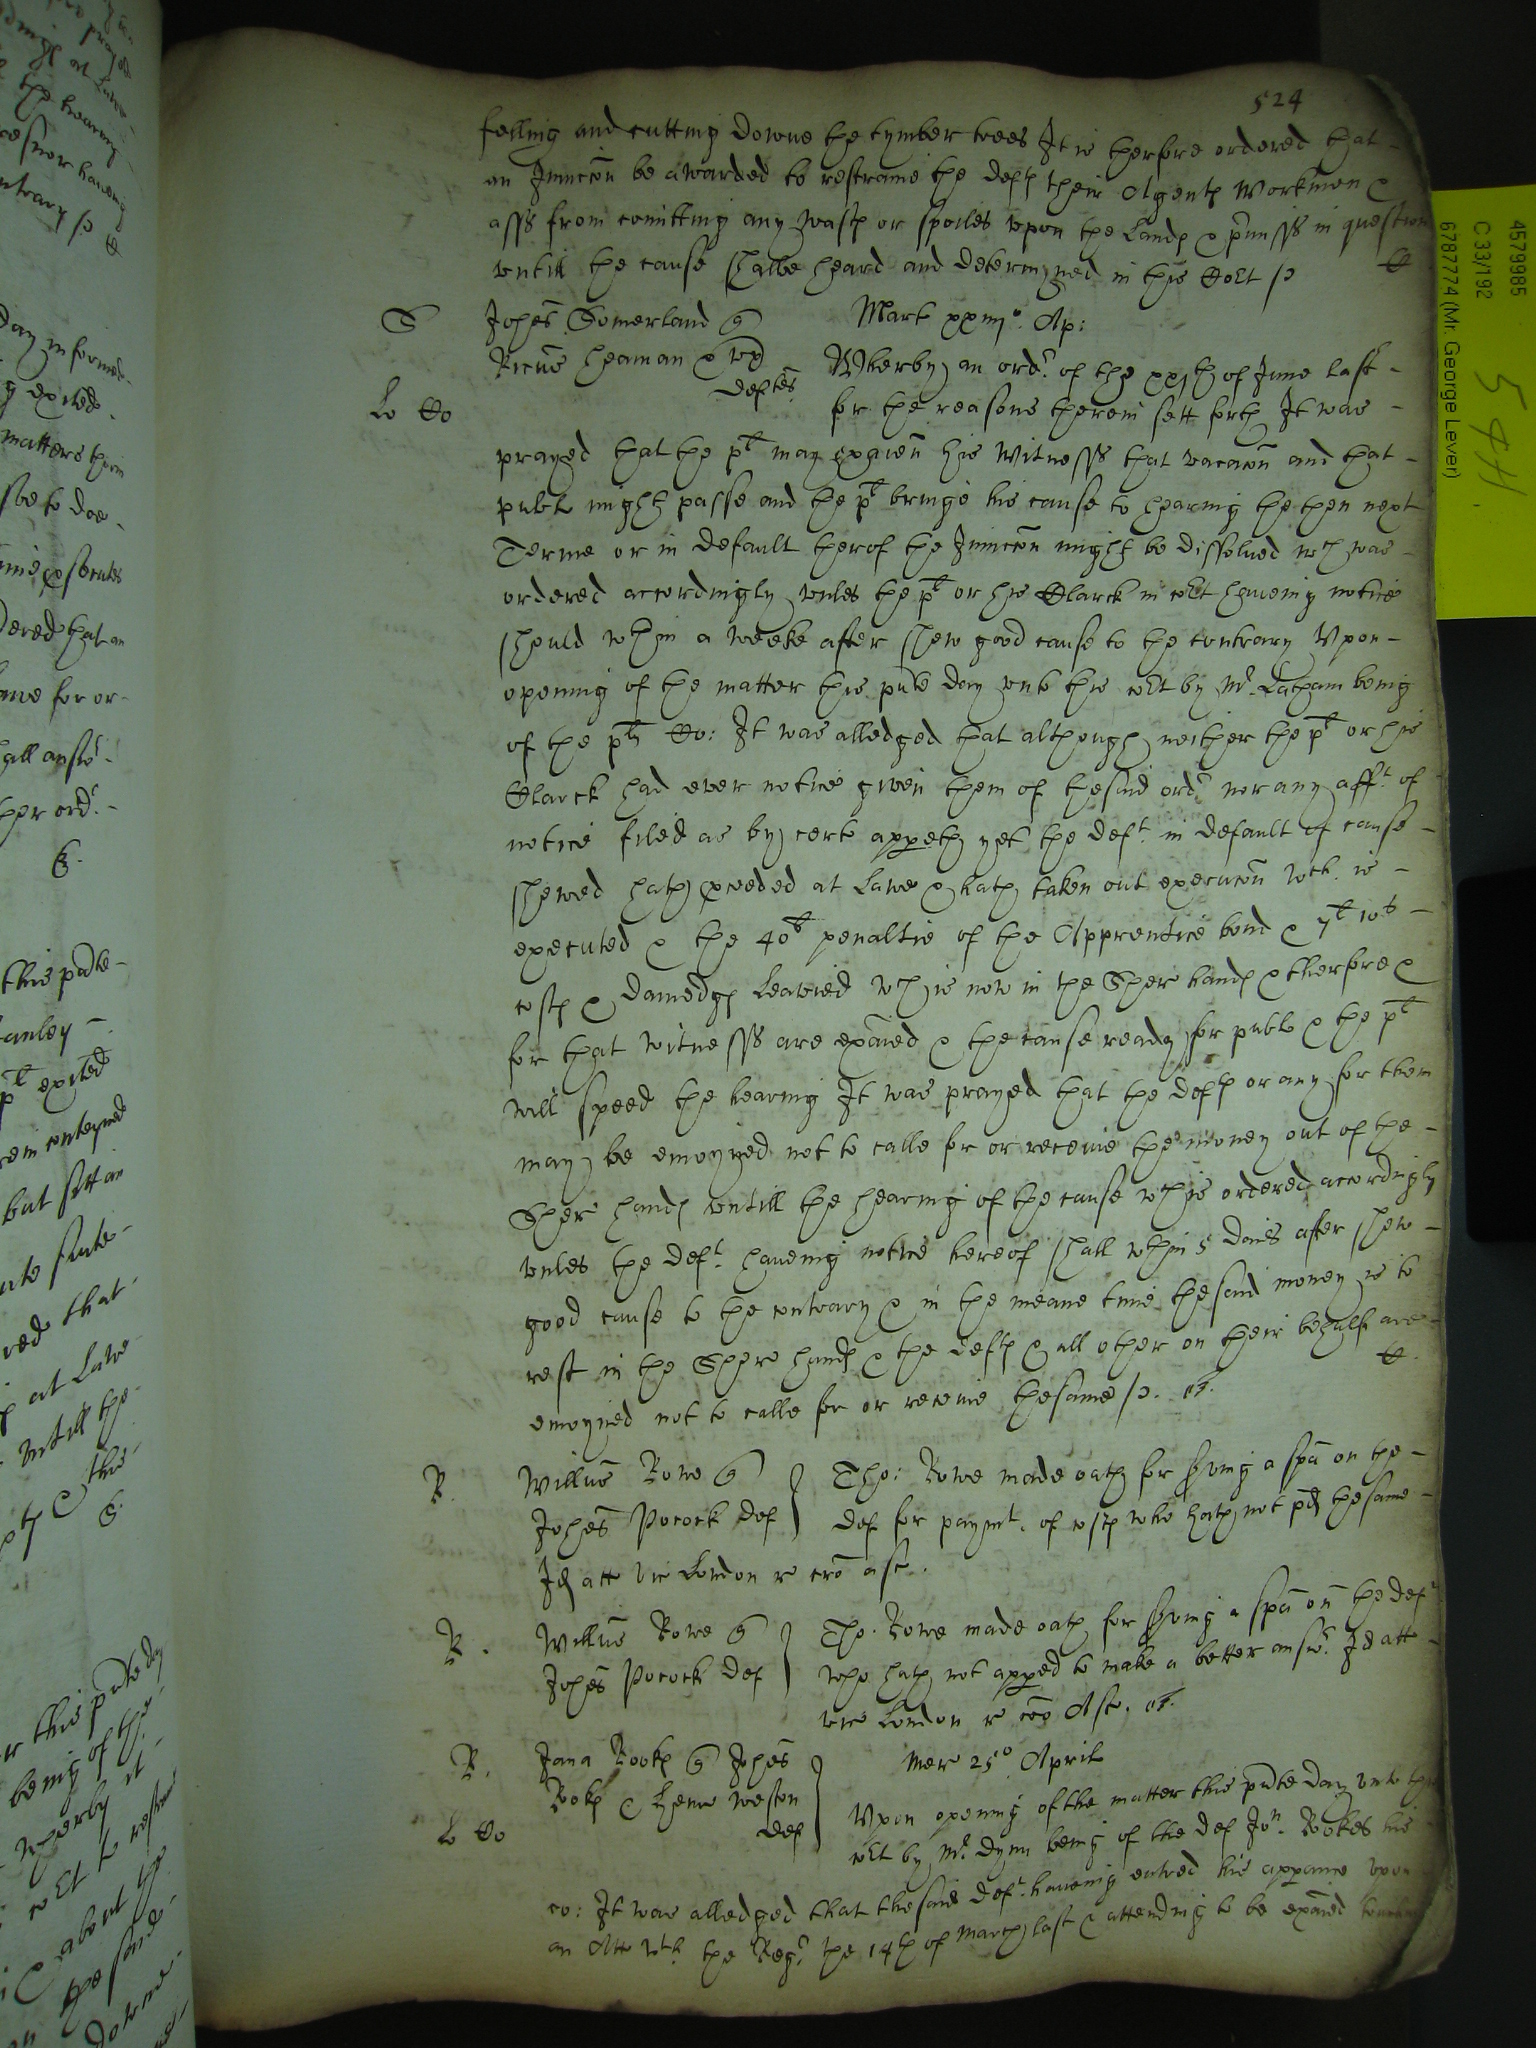 524
felling and cutting downe the tymber trees It is therfore ordered that
an Iniuncc̄on be awarded to restraine the defts their Agents Workmen &
asss from comitting any wasts or spoiles vpon the Lands & p̄misss in question
vntill the cause shalbe heard and determyned in this Co̅rt /
S Joh̄es Somerland q Mart xxiiijo. Ap:
Ricus heaman & ux Wherby an ordr. of the xxjth of June last
deftes. for the reasons therein sett forth It was
Lo Co
prayed that the plt may exaien his Witnesss that vacac̄on and that
publ might passe and the plt bringe his cause to hearing the then next
Terme or in default therof the Iniuncc̄on might be dissolued wch was
ordered accordingly vnles the plt or his Clarck in co̅rt haueing notice
should wthin a weeke after shew good cause to the contrary Vpon
opening of the matter this pn̄te day vnto this co̅rt by Mr. Latham being
of the plts Co: It was alledged that although neither the plt or his
Clarck had ever notice given them of the said ordr nor any afft. of
notice filed as by cert appeth yet the deft. in default of cause
shewed hath pceeded at Lawe & hath taken out execuc̄on wch. is
executed & the 40l penaltie of the Apprentice bond & 7l 10s
costs & damedges Leavied wch is now in the Sher hands & therfore &
for that witnesss are exāied & the cause ready for publ & the plt
will speed the hearing It was prayed that the defts or any for them
may be enioyned not to calle for or receive the money out of the
Sher hands vntill the hearing of the cause wch is ordered accordingly
vnles the deft. haueing notice hereof shall wthin 5 daies after shew
good cause to the contrary & in the meane time the said money is to
rest in the Shere hands & the defts & all other on their behalfe are
enioyned not to calle for or receive the same /.
R. Willus Rowe q Tho: Rowe made oath for sving a spā on the
Joh̄es Pocock def def for paymt. of costs who hath not pd the same
Id att vic London re cro asc.
R. Willus Rowe q Tho. Rowe made oath for sving a spā on the deft
Joh̄es Pocock def who hath not apped to make a better answr. Id att
vic London re cro Asc.
R. Jana Rooks q Joh̄es Mer 25o April
Roks & henr weston Vpon opening of the matter this pn̄te day vnto this
Lo Co def co̅rt by Mr. dynn being of the def Jon. Rookes his
co: It was alledged that the said deft. haueing entred his appance vpon
an Att wth. the Regr. the 14th of March last & attending to be exāied
4579985
C 33/192
6787774 (Mr. George Lever)
544